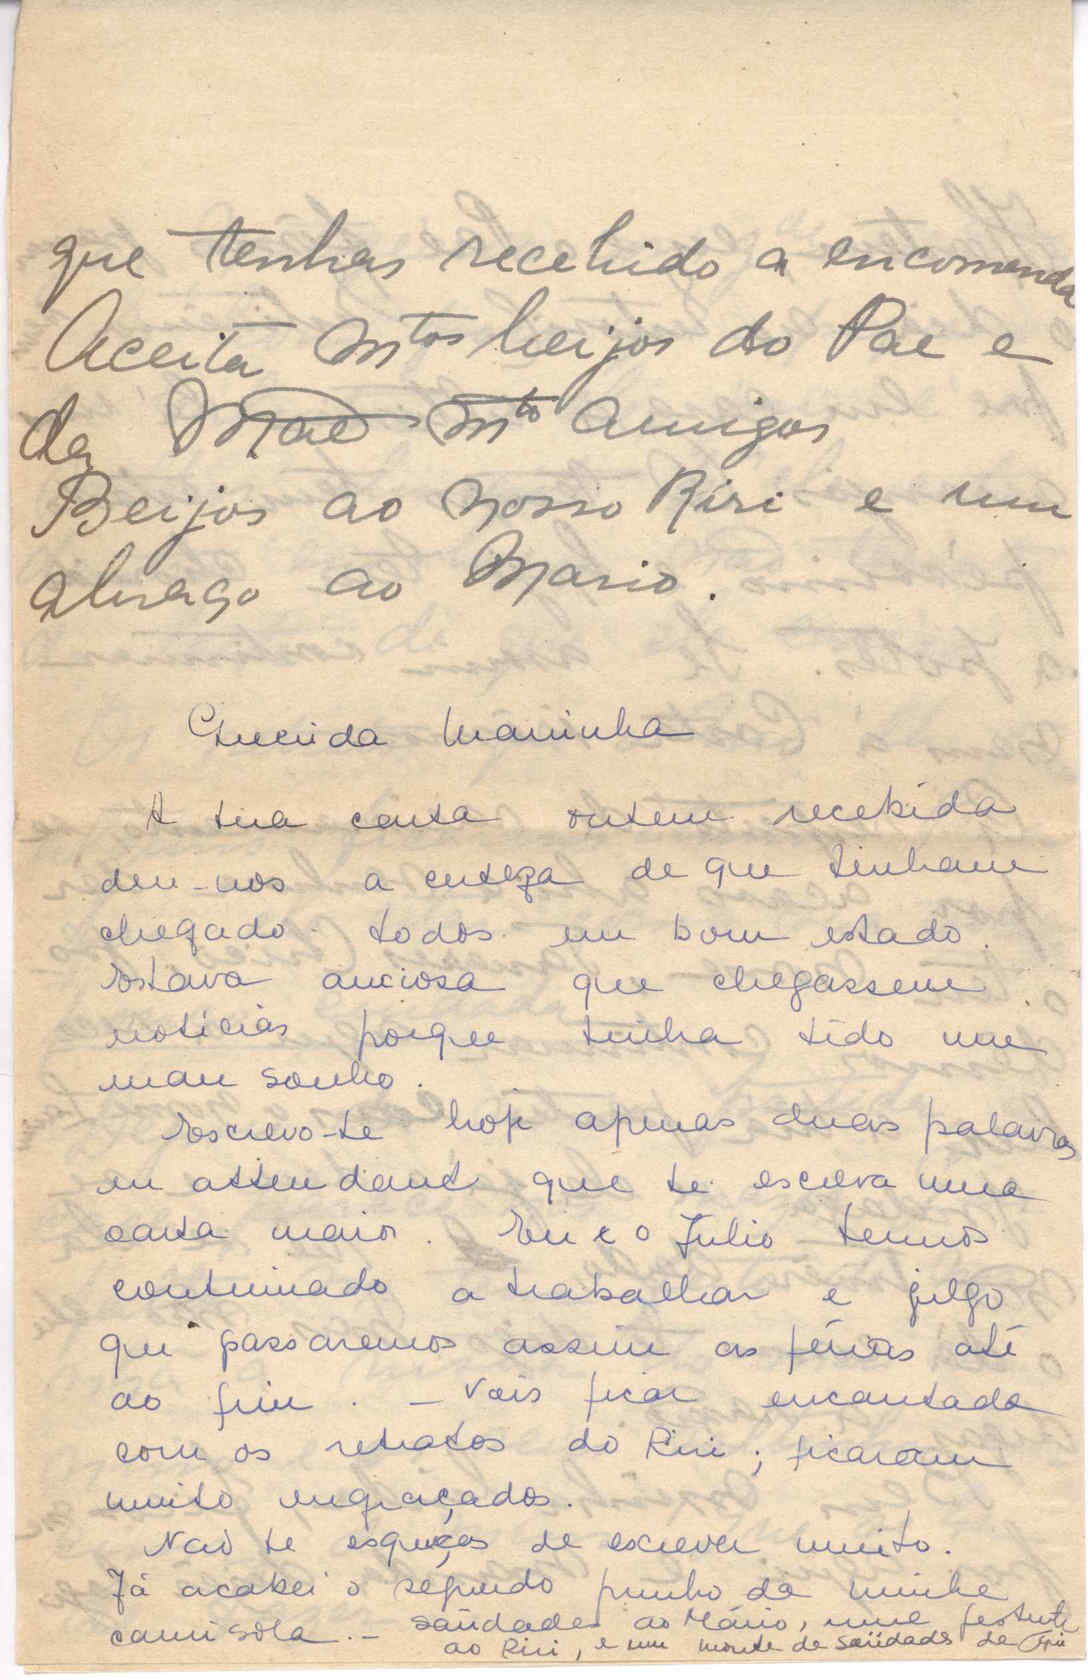 que tenhas recebido a encomenda
Aceita Mtos beijos do Pae e
da Mãe Mto Amigos
Beijos ao nosso Riri e um
abraço ao Mario.
Querida Maninha
A tua carta ontem recebida
deu-nos a certeza de que tinham
chegado todos em bom estado.
Estava anciosa que chegassem
notícias porque tinha tido um
mau sonho.
Escrevo-te hoje apenas duas palavras
en attendant que te escreva uma
carta maior. Eu e o Julio temos
continuado a trabalhar e julgo
que passaremos assim as férias até
ao fim. - Vais ficar encantada
com os retratos do Riri; ficaram
muito engraçados.
Não te esqueças de escrever muito.
Já acabei o segundo punho da minha
camisola. - saüdades ao Mário, uma
ao Riri, e um monte de saüdades da